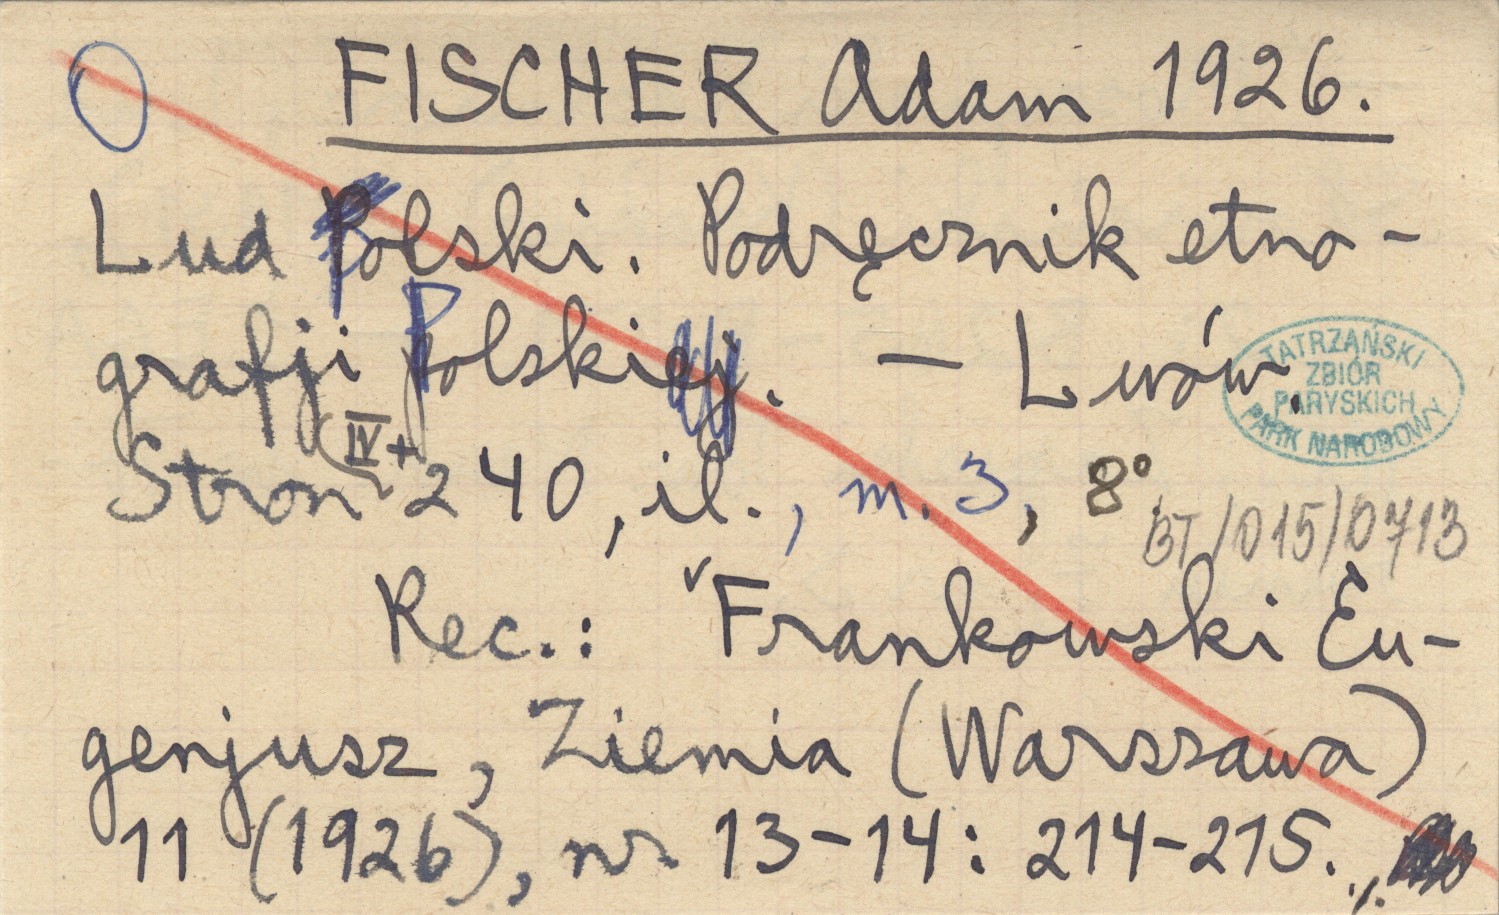 FISCHER Adam 1926.
Lud Polski. Podręcznik etno-
grafji Polski. — Lwów.
TATRZAŃSKI
ZBIÓR
PARYSKICH
PARK NARODOWY
Stron IV+240, il., m. 3, 8°
BT/015/0713
Rec.: Frankowski Eu-
genjusz, Ziemia (Warszawa)
11 (1926), nr 13-14: 214-215.